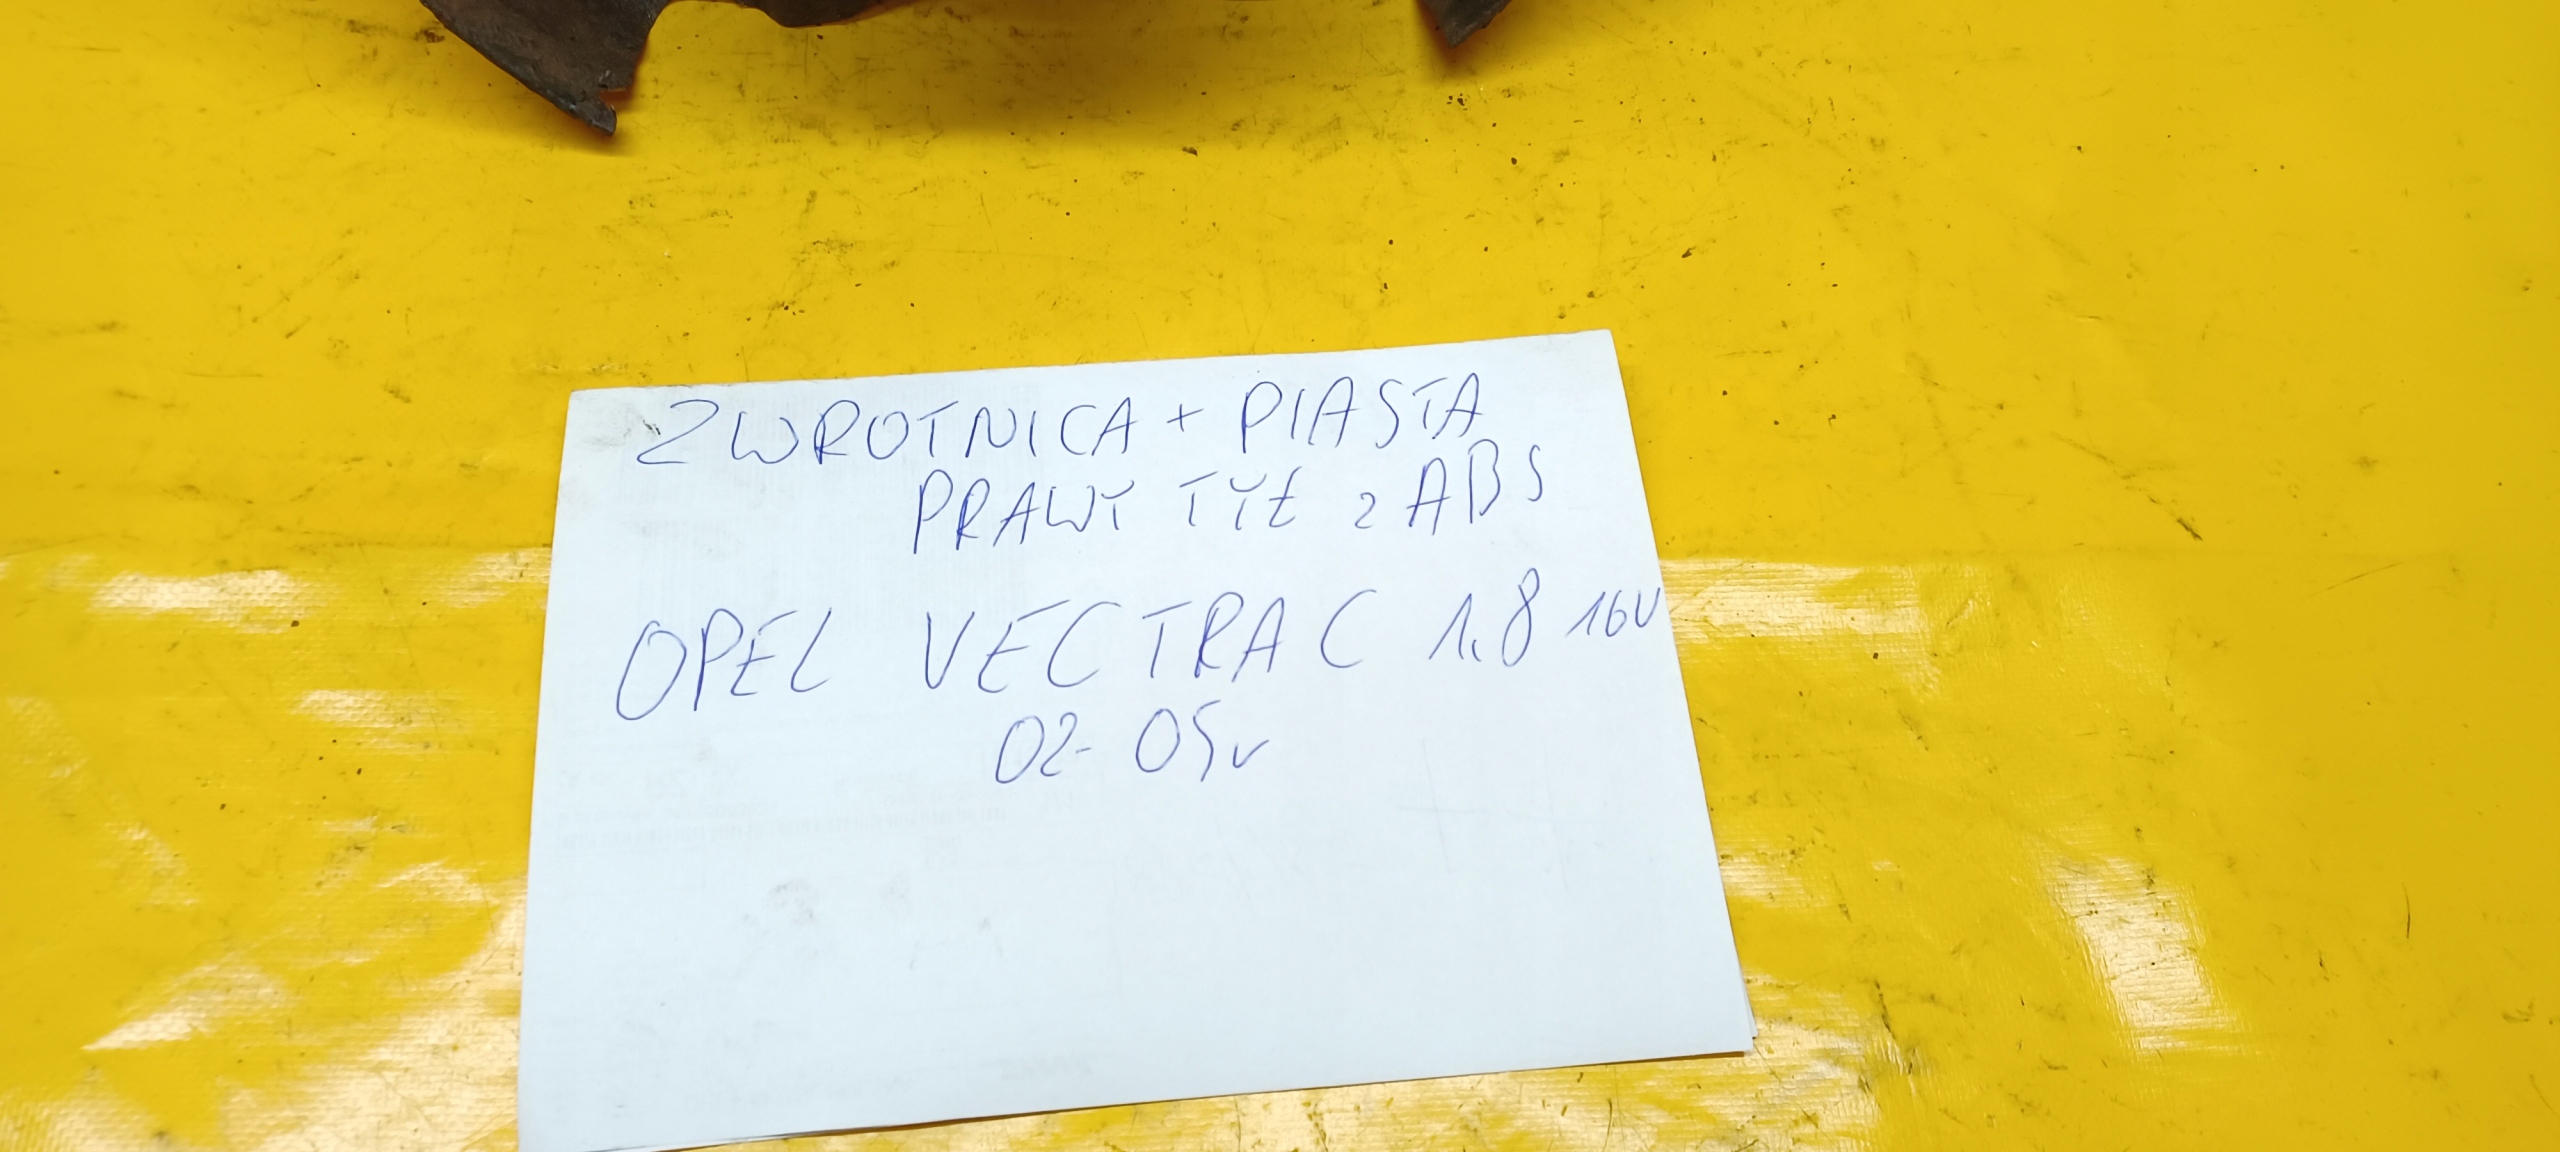 ZWROTNICA + PIASTA
PRAWY TYŁ z ABS
OPEL VECTRA C 1.8 16V
02-05r